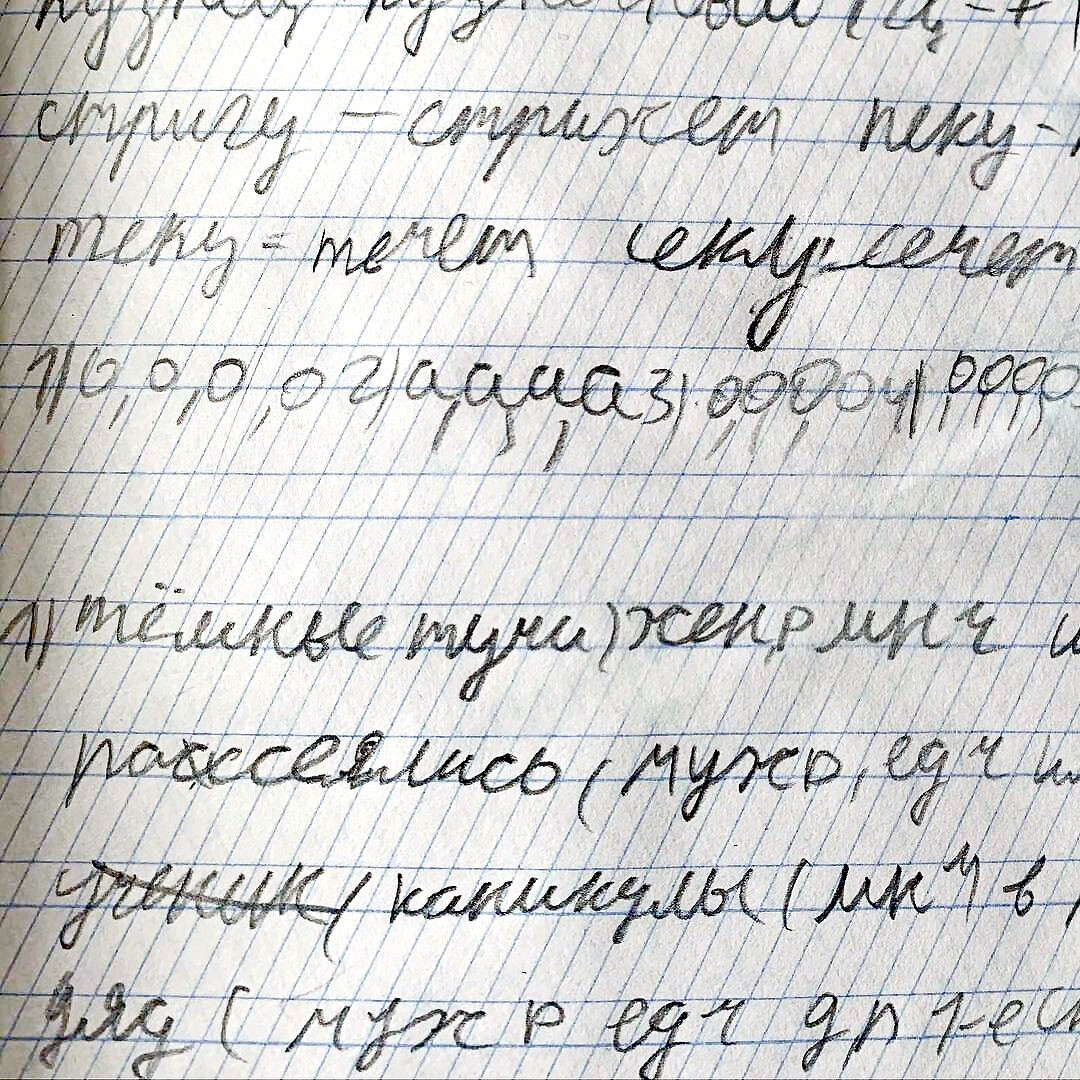 стригу – стрижет пеку-
теку - течет секу-сечет
1) о, о, о, о 2) а, а, а, а 3) о, о, о, о 4) о, о, о, о
1) тёмные тучи) жен.р мн ч
рассеялись ( муж р, ед ч
ученик ( каникулы ( мн ч в
( муж р ед ч д п 1-е